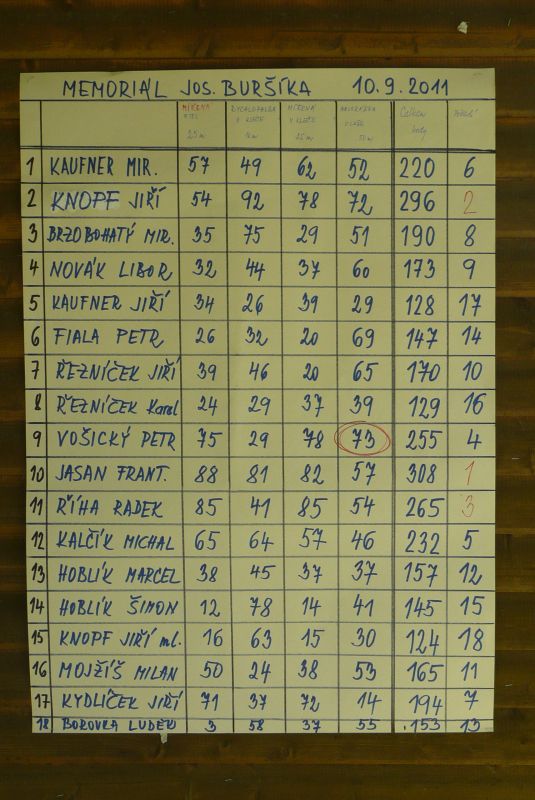 MEMORIÁL JOS. BURŠÍKA 10.9.2011
MÍŘENÁ 25m RYCHLOPALBA V KLEČE MÍŘENÁ V KLEČE 25m 50m Celkem body
1 KAUFNER MIR. 57 49 62 52 220 6
2 KNOPF JIŘÍ 54 92 78 72 296 2
3 BRZOBOHATÝ MIR. 35 75 29 51 190 8
4 NOVÁK LIBOR 32 44 37 60 173 9
5 KAUFNER JIŘÍ 34 26 39 29 128 17
6 FIALA PETR 26 32 20 69 147 14
7 ŘEZNÍČEK JIŘÍ 39 46 20 65 170 10
8 ŘEZNÍČEK Karel 24 29 37 39 129 16
9 VOŠICKÝ PETR 75 29 78 73 255 4
10 JASAN FRANT. 88 81 82 57 308 1
11 ŘÍHA RADEK 85 41 85 54 265 3
12 KALČÍK MICHAL 65 64 57 46 232 5
13 HOBLÍK MARCEL 38 45 37 37 157 12
14 HOBLÍK ŠIMON 12 78 14 41 145 15
15 KNOPF JIŘÍ ml. 16 63 15 30 124 18
16 MOJŽÍŠ MILAN 50 24 38 53 165 11
17 KYDLÍČEK JIŘÍ 71 37 72 14 194 7
18 BOROVKA LUDĚK 3 58 37 55 153 13